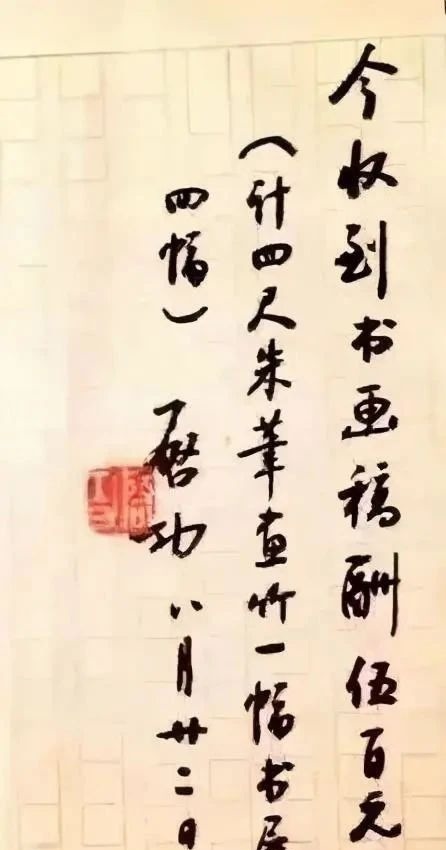 今收到书画稿酬伍百元
（计四尺朱笔画竹一幅书居
四幅）
启功 八月廿二日
启功